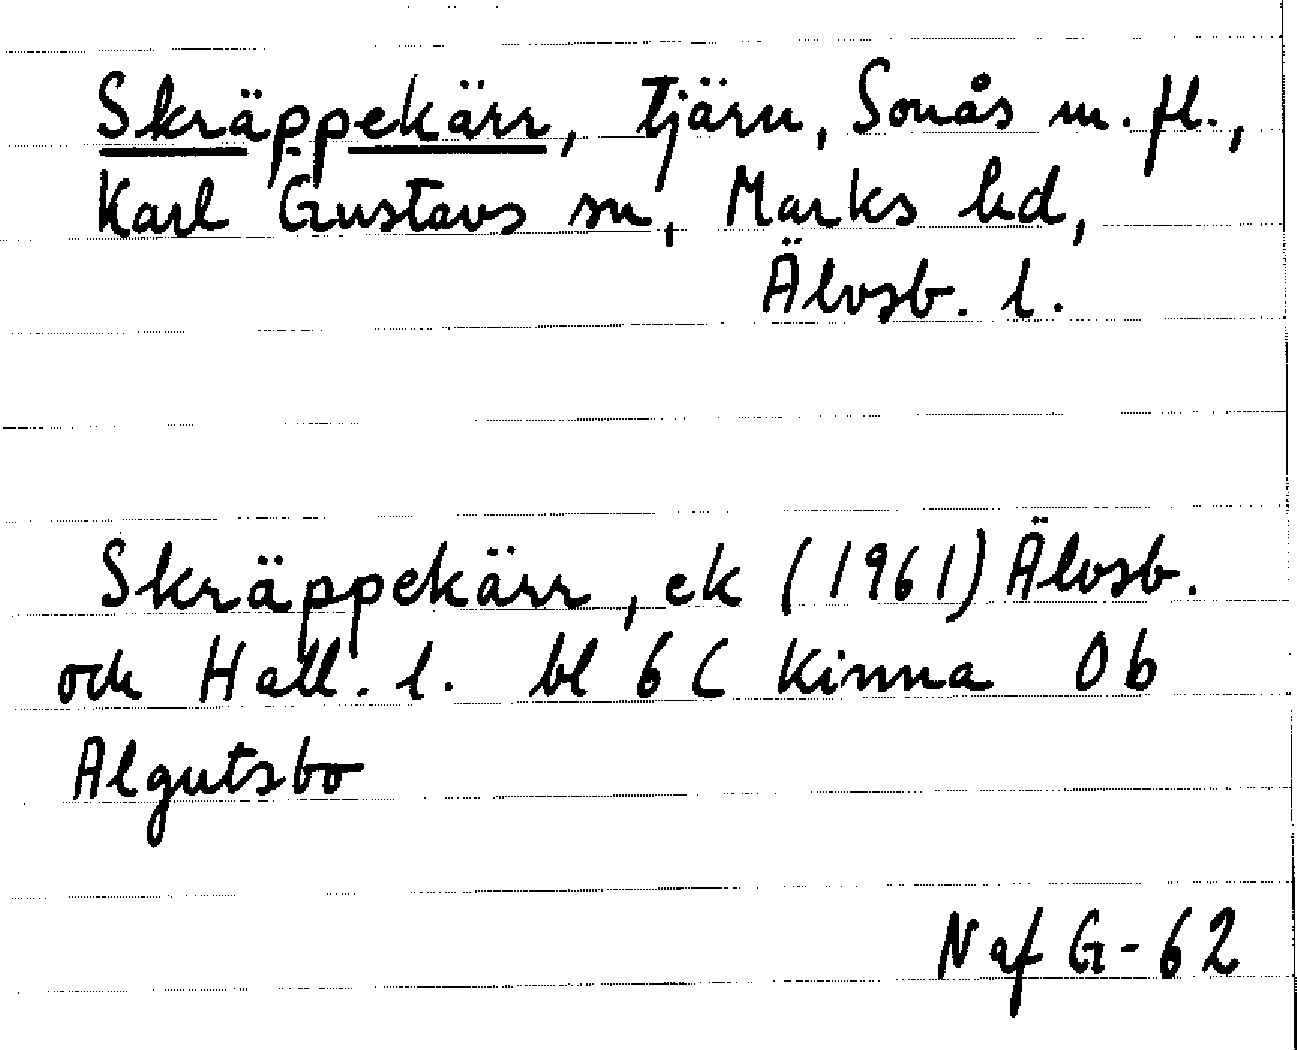 Skräppekärr, tjärn, Sonås m. fl.,
Karl Gustavs sn, Marks hd,
Älvsb. l.
Skräppekärr, ek (1961) Älvsb.
och Hall. l. bl 6 C Kinna 0b
Algutsbo
N af G-62